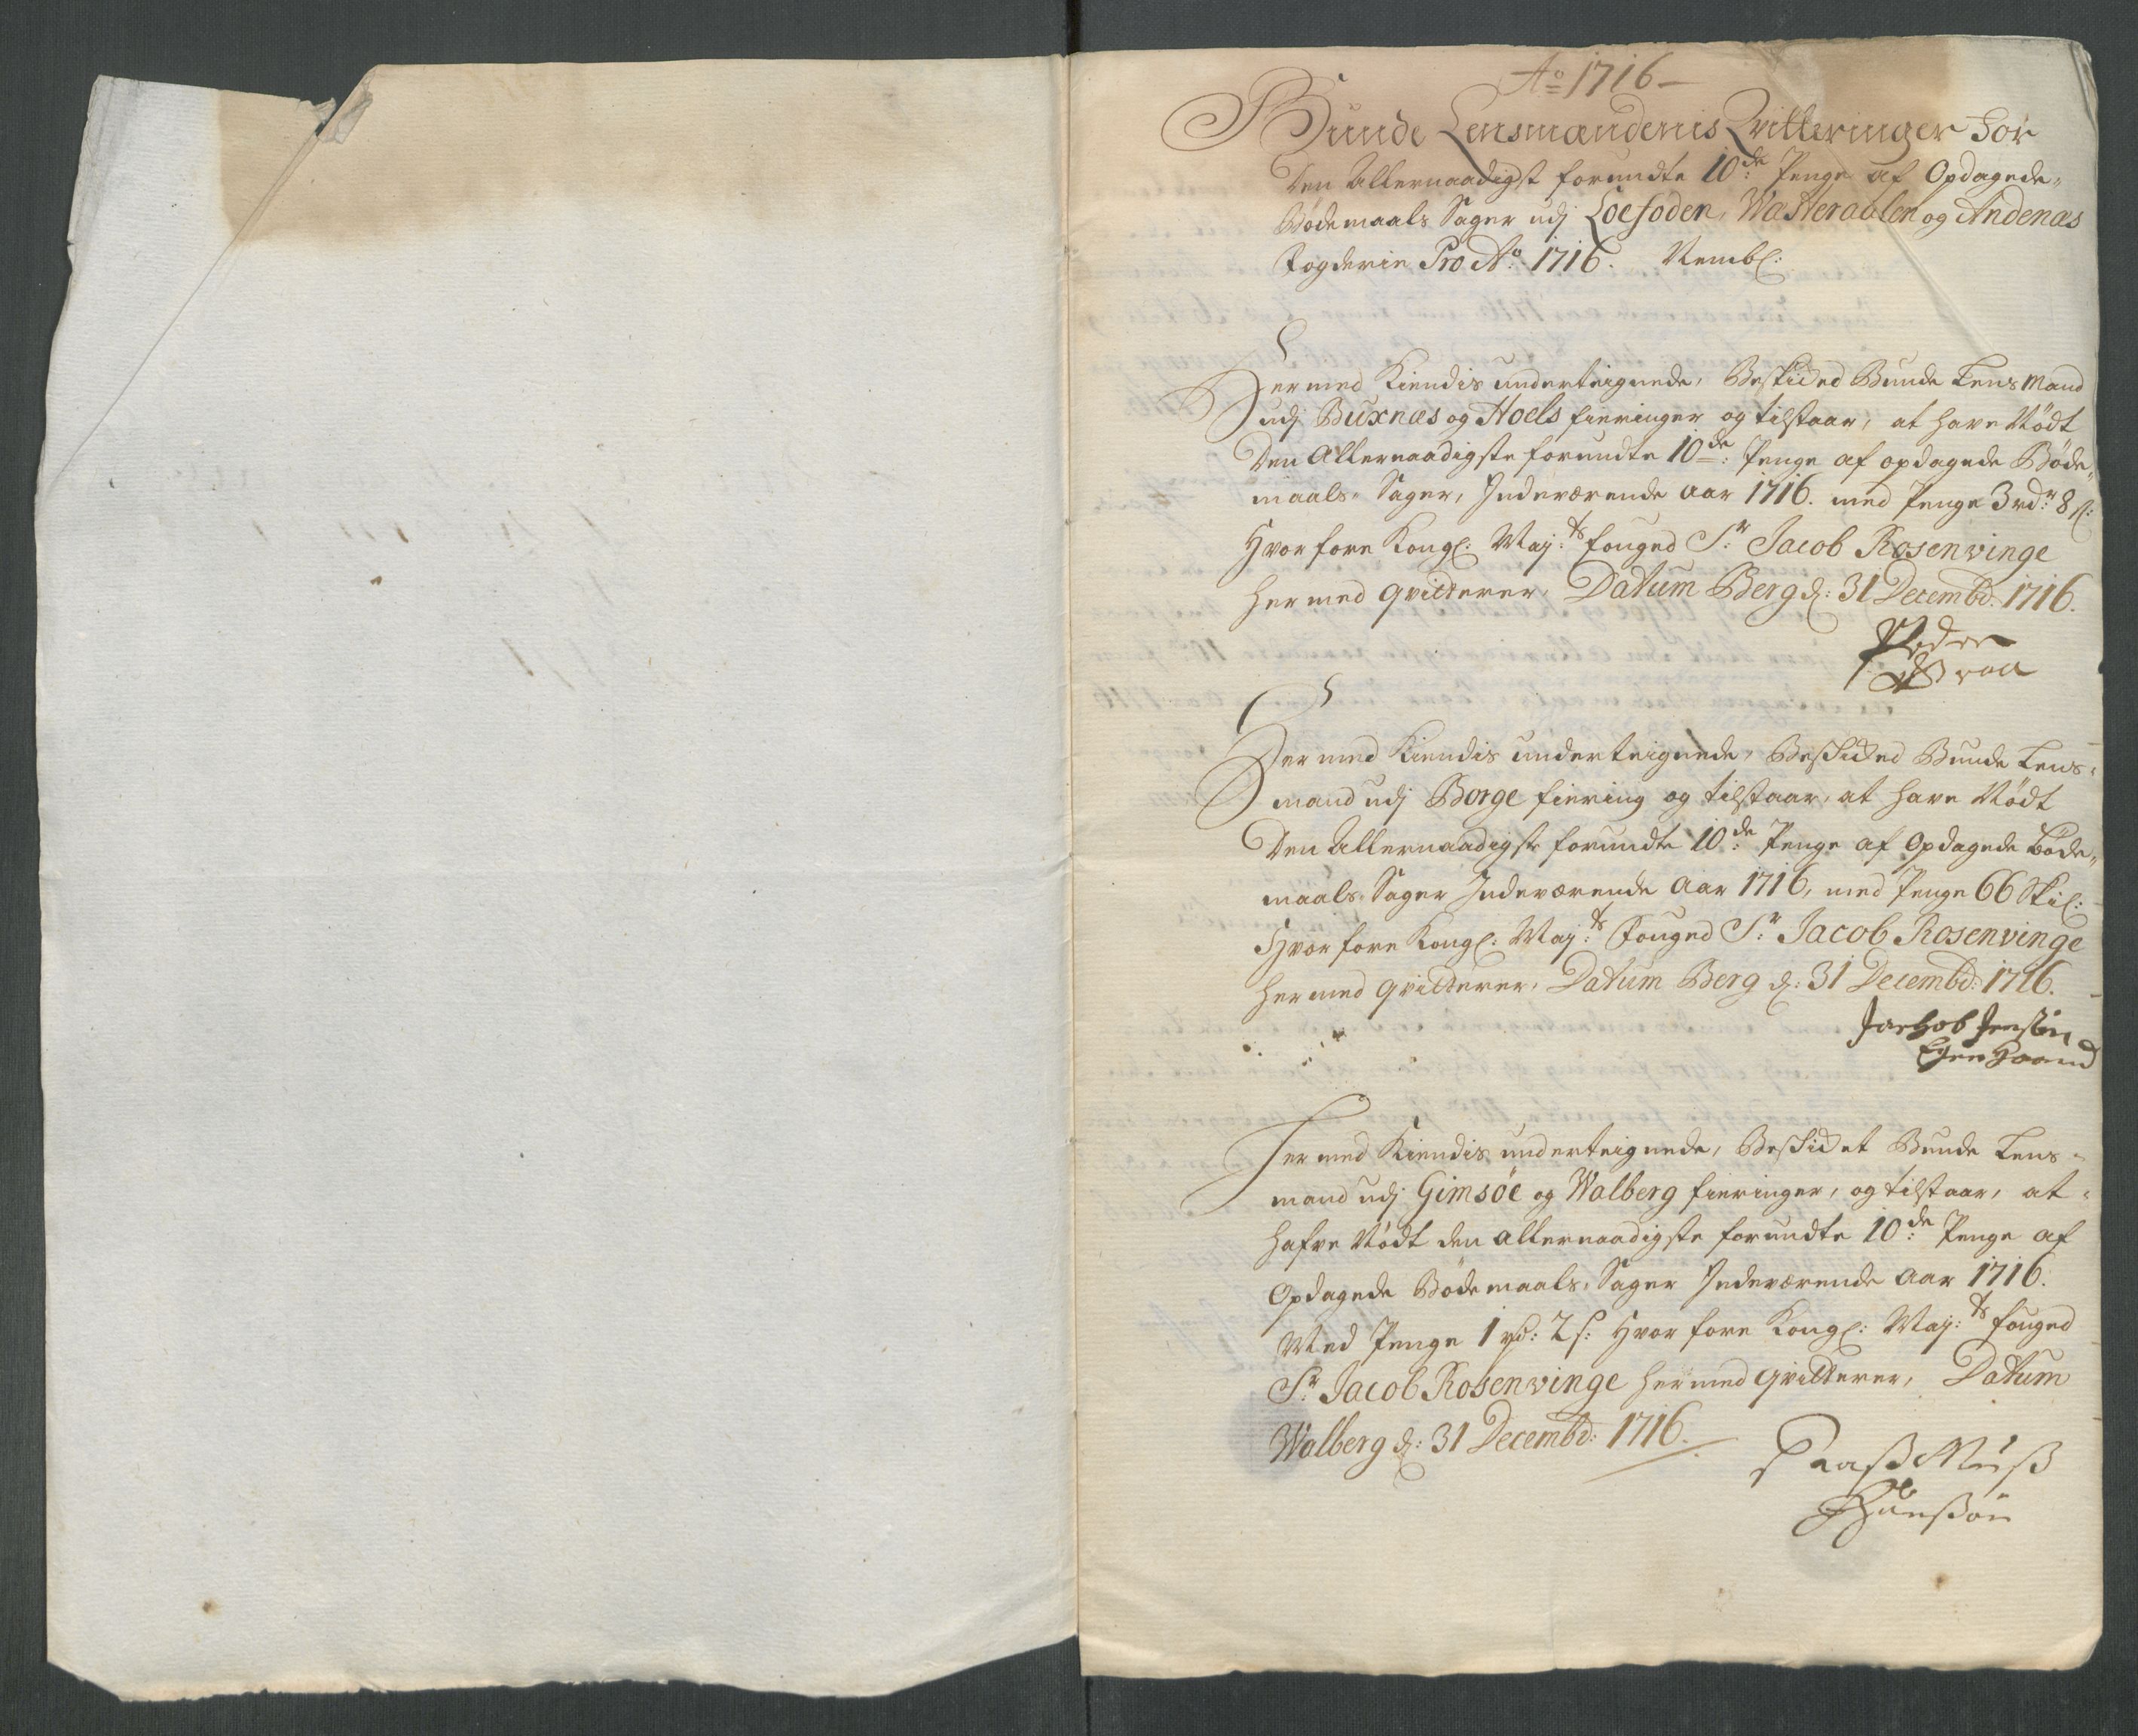 Ao 1716
Bunde Lensmændenis Qvitteringer for
Den Allernaadigst forundte 10de: Penge af Opdagede
Bödemaals Sager udj Loefoden, Wasteraalen og Andenæs
Fogderie Pro Ao 1716. Nembl:
Hermed Kiendis underteignede, Beskicked Bunde Lens Mand
udj Buxnæs og Hoels fieringer og tilstaar, at have Nödt
Den Allernaadigste forundte 10de: Penge af opdagede Böde-
maals- Sager, Indeværende Aar 1716. med Penge 3 rdr: 8 s:
Hvorfore Kongl: Maÿ:ts fouged Sr: Jacob Rosenvinge
hermed qvitterer, Datum Berg d: 31 Decembd: 1716.
Peder
Hermed Kiendis underteignede, Beskicked Bunde Lens-
mand udj Borge fiering og tilstaar, at have Nödt
Den Allernaadigste forundte 10de: Penge af Opdagede Böde-
maals- Sager Indeværende Aar 1716, med Penge 66 Skil:
Hvorfore Kongl: Maÿ:ts Fouged Sr: Jacob Rosenvinge
hermed qvitterer, Datum Berg d: 31 Decembd: 1716.
Jachob Jensön
Egen Haand
Hermed Kiendis underteignede, Beskicket Bunde Lens-
mand udj Gimsöe og Walberg fieringer, og tilstaar, at
hafve Nödt den allernaadigste forundte 10de: Penge af
Opdagede Bödemaals- Sager Indeværende Aar 1716.
Med Penge 1 rd: 2 s: Hvorfore Kongl: Maÿ:ts fouged
Sr: Jacob Rosenvinge hermed qvitterer, Datum
Walberg d: 31 Decembd: 1716.
Hanßön